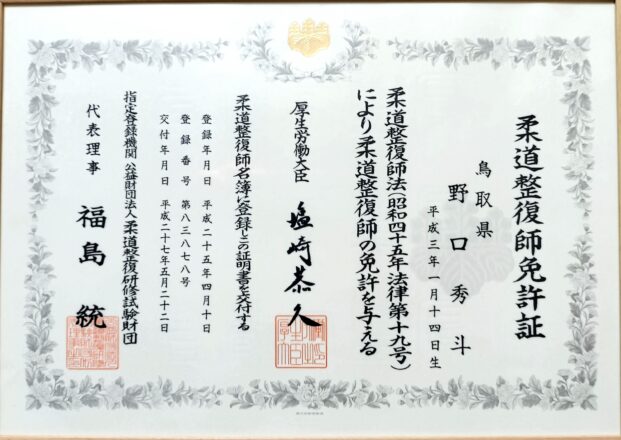 柔道整復師免許証
鳥取県
野口秀斗
平成三年一月十四日生
柔道整復師法(昭和四十五年法律第十九号)
により柔道整復師の免許を与える
厚生労働大臣 塩崎恭久
柔道整復師名簿に登録しこの証明書を交付する
登録年月日 平成二十五年四月十日
登録番号 第八三八七八号
交付年月日 平成二十七年五月二十二日
指定登録機関 公益財団法人 柔道整復研修試験財団
代表理事 福島統